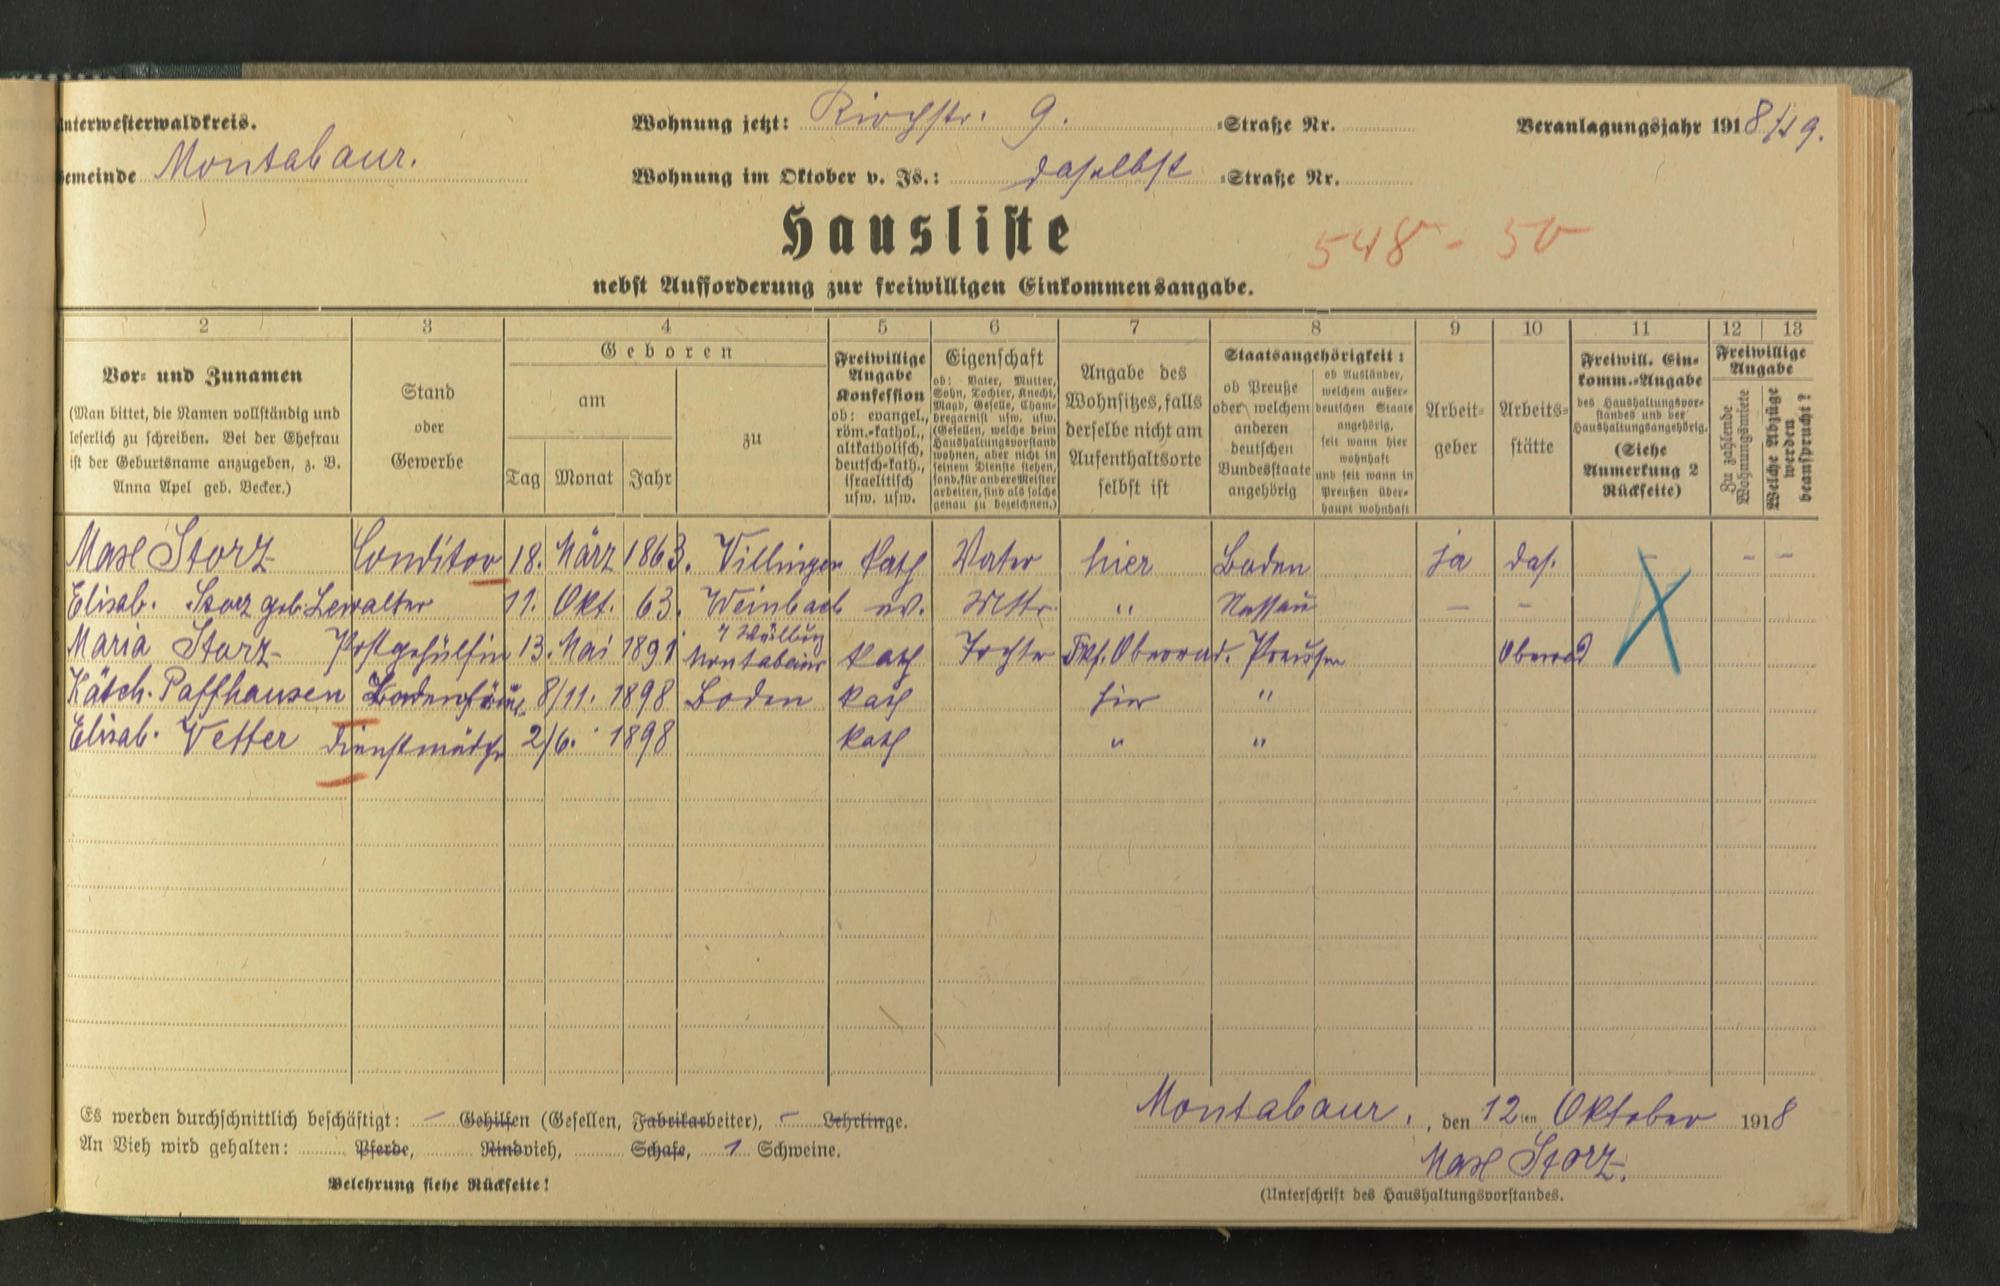 Unterwesterwaldkreis.
Wohnung jetzt: Kirchstr. 9. =Straße Nr.
Veranlagungsjahr 1918/19.
Gemeinde Montabaur.
Wohnung im Oktober v. Js.: daselbst =Straße Nr.
Hausliste
548 - 50
nebst Aufforderung zur freiwilligen Einkommensangabe.
2 3 4 5 6 7 8 9 10 11 12 13
Vor- und Zunamen
(Man bittet, die Namen vollständig und
leserlich zu schreiben. Bei der Ehefrau
ist der Geburtsname anzugeben, z. B.
Anna Apel geb. Becker.)
Stand
oder
Gewerbe
Geboren
am
Tag Monat Jahr
zu
Freiwillige
Angabe
Konfession
ob: evangel.,
röm.-kathol.,
altkatholisch,
deutsch-kath.,
israelitisch
usw. usw.
Eigenschaft
ob: Vater, Mutter,
Sohn, Tochter, Knecht,
Magd, Geselle, Cham-
bregarnist usw. usw.
(Gesellen, welche beim
Haushaltungsvorstand
wohnen, aber nicht in
seinem Dienste stehen,
sond. für andere Meister
arbeiten, sind als solche
genau zu bezeichnen.)
Angabe des
Wohnsitzes, falls
derselbe nicht am
Aufenthaltsorte
selbst ist
Staatsangehörigkeit:
ob Preuße
oder welchem
anderen
deutschen
Bundesstaate
angehörig
ob Ausländer,
welchem außer-
deutschen Staate
angehörig,
seit wann hier
wohnhaft
und seit wann in
Preußen über-
haupt wohnhaft
Arbeit-
geber
Arbeits-
stätte
Freiwill. Ein-
komm.-Angabe
des Haushaltungsvor-
standes und der
Haushaltungsangehörig.
(Siehe
Anmerkung 2
Rückseite)
Freiwillige
Angabe
Zu zahlende
Wohnungsmiete
Welche Abzüge
werden
beansprucht?
Max Storz Conditor 18. März 1863. Villingen kath Vater hier Baden ja das. - - -
Elisab. Storz geb. Lewalter 11. Okt. 63. Weinbach ev. Mttr. " Nassau - -
Maria Storz Postgehülfin 13. Mai 1891 Montabaur kath Tochter Fkf. Oberrad. Preußen Oberrad
Käteh. Paffhausen Ladenfräul. 8/11. 1898 Boden kath hier "
Elisab. Vetter Dienstmädch 2/6. 1898 kath " "
Es werden durchschnittlich beschäftigt: - Gehilfen (Gesellen, Fabrikarbeiter), - Lehrlinge.
An Vieh wird gehalten: Pferde, Rindvieh, Schafe, 1 Schweine.
Belehrung siehe Rückseite!
Montabaur, den 12ten Oktober 1918
Max Storz.
(Unterschrift des Haushaltungsvorstandes.